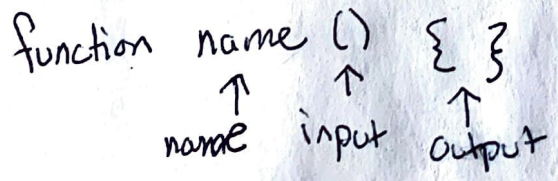 function name () { }
↑ ↑ ↑
name input output